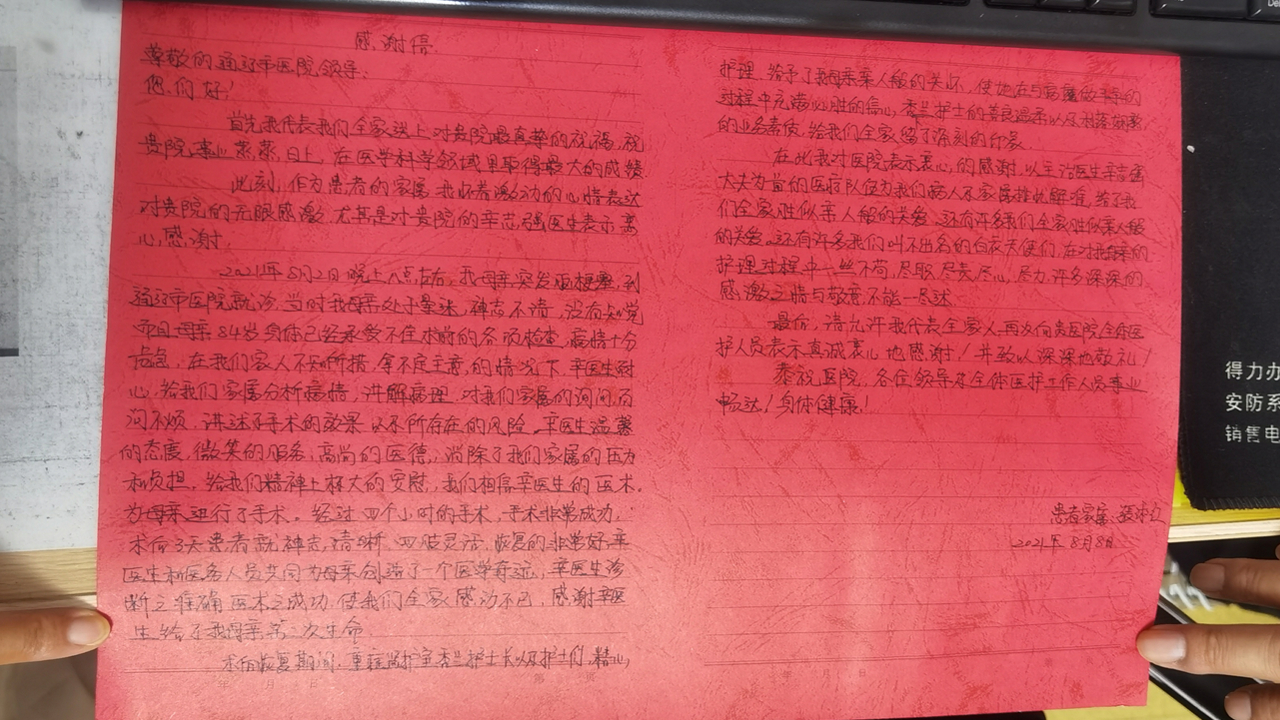 感谢信
尊敬的通辽市医院领导:
您们好!
首先我代表我们全家送上对贵院最真挚的祝福,祝
贵院事业蒸蒸日上,在医学科学领域里取得最大的成绩
此刻,作为患者的家属,我怀着激动的心情表达
对贵院的无限感激,尤其是对贵院的辛志强医生表示衷
心感谢.
2021年8月2日晚上八点左右,我母亲突发脑梗塞,到
通辽市医院就诊,当时我母亲处于昏迷,神志不清,没有知觉
而且母亲84岁身体已经承受不住术前的各项检查,病情十分
危急,在我们家人不知所措,拿不定主意,的情况下,辛医生耐
心,给我们家属分析病情,讲解病理,对我们家属的询问,百
问不烦,讲述了手术的效果以及所存在的风险,辛医生温馨
的态度,微笑的服务,高尚的医德,消除了我们家属的压力
和负担,给我们精神上极大的安慰,我们相信辛医生的医术.
为母亲进行了手术。经过四个小时的手术,手术非常成功.
术后3天患者就神志清晰,四肢灵活,恢复的非常好,辛
医生和医务人员共同为母亲创造了一个医学奇迹,辛医生诊
断之准确,医术之成功,使我们全家感动不已,感谢辛医
生给了我母亲第二次生命
术后恢复期间,重症监护室 护士长以及护士们,精心
护理,给予了我母亲亲人般的关怀,使她在与病魔做斗争的
过程中充满必胜的信心, 护士的善良温柔以及
的业务素质,给我们全家留下深刻的印象.
在此我对医院表示衷心的感谢,以主治医生辛志强
大夫为首的医疗队伍为我们病人及家属排忧解难,给了我
们全家胜似亲人般的关爱,还有许多我们全家胜似亲人般
的关爱,还有许多我们叫不出名的白衣天使们,在对我母亲的
护理过程中一丝不苟,尽职,尽责,尽心,尽力,许多深深的
感激之情与敬意不能一尽述.
最后,请允许我代表全家人再次向贵医院全体医
护人员表示真诚衷心地感谢!并致以深深地敬礼!
恭祝医院,各位领导及全体医护工作人员事业
畅达!身体健康!
患者家属:
2021年8月8日
年 月 日
第 页
得力办
安防系
销售电